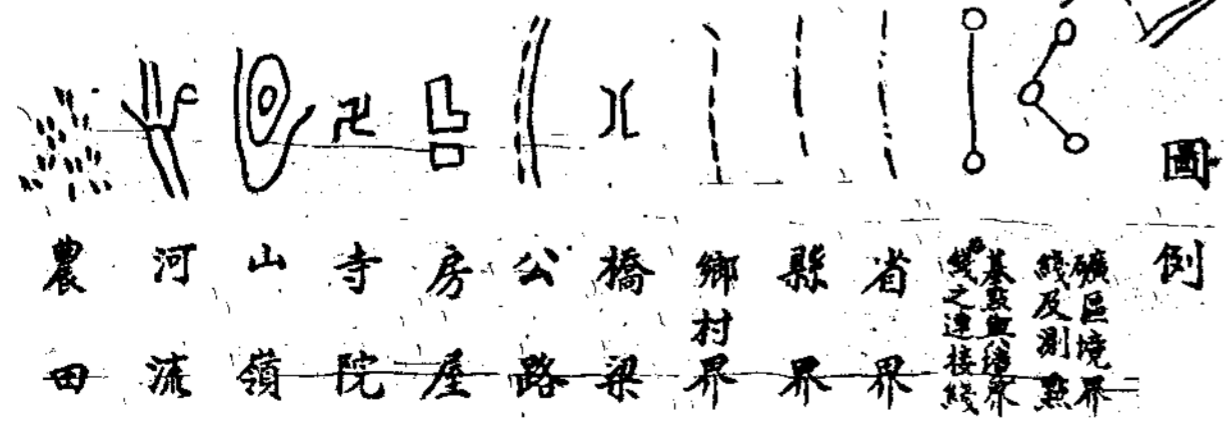 圖例
礦區境界
綫及測點
基點與
綫之連接綫
省界
縣界
鄉村界
橋梁
公路
房屋
寺院
山嶺
河流
農田